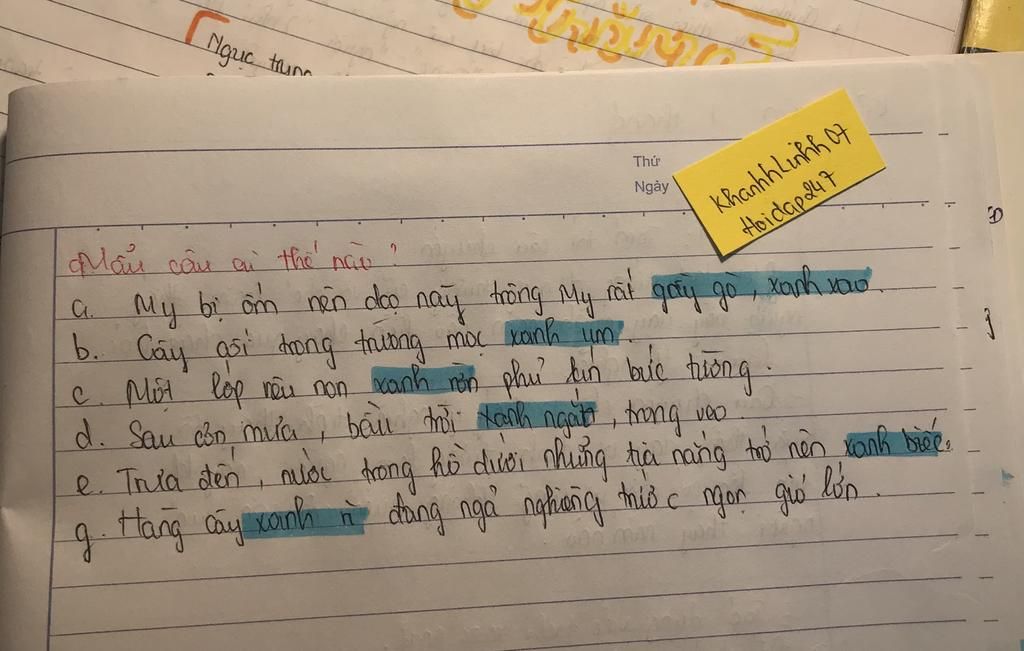 Ngục trung
Thứ
Ngày
KhanhLinh07
Hoidap247
Mẫu câu ai thế nào?
a. My bị ốm nên dạo này trông My rất gầy gò, xanh xao.
b. Cây cối trong trường mọc xanh um.
c. Một lớp rêu non xanh rờn phủ kín bức tường.
d. Sau cơn mưa, bầu trời xanh ngắt, trong veo.
e. Trưa đến, nước trong hồ dưới những tia nắng trở nên xanh biếc.
g. Hàng cây xanh rì đang ngả nghiêng trước ngọn gió lớn.